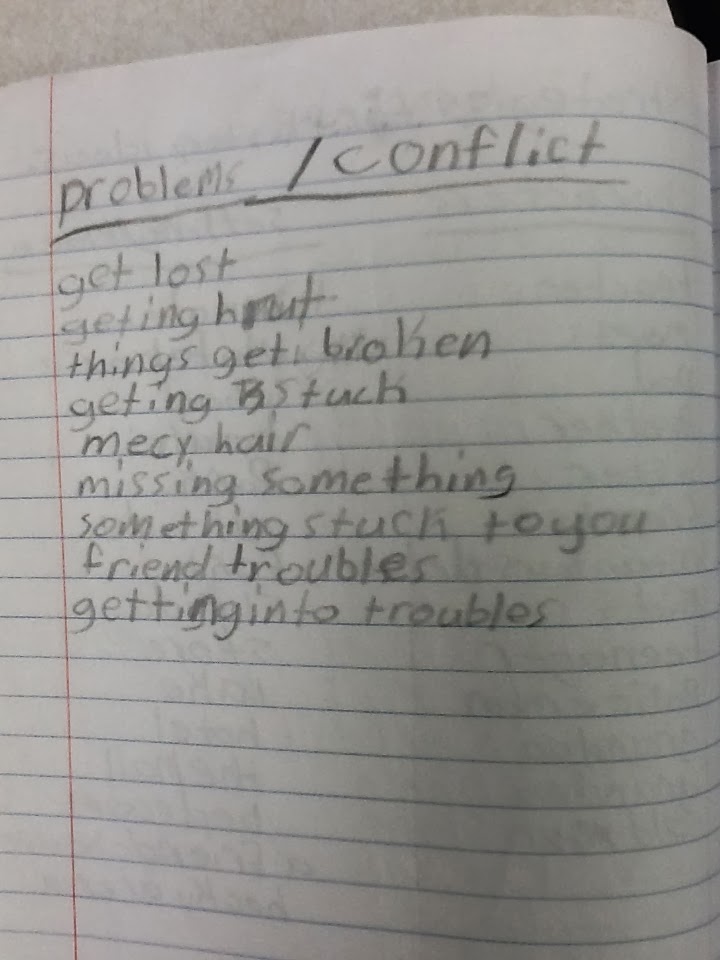 problems / conflict
get lost
geting hrut
things get broken
geting stuck
mecy hair
missing something
something stuck to you
friend troubles
getting into troubles